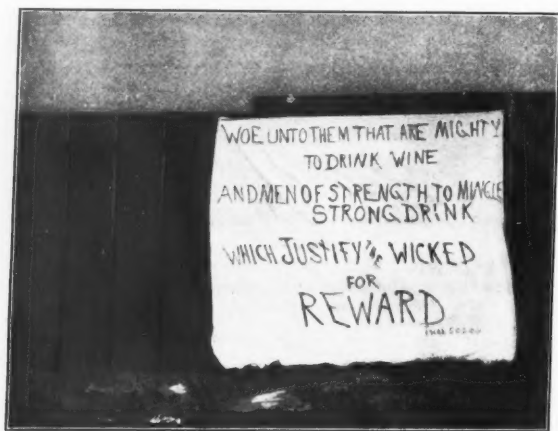 WOE UNTO THEM THAT ARE MIGHTY
TO DRINK WINE
AND MEN OF STRENGTH TO MINGLE
STRONG DRINK
WHICH JUSTIFY THE WICKED
FOR
REWARD